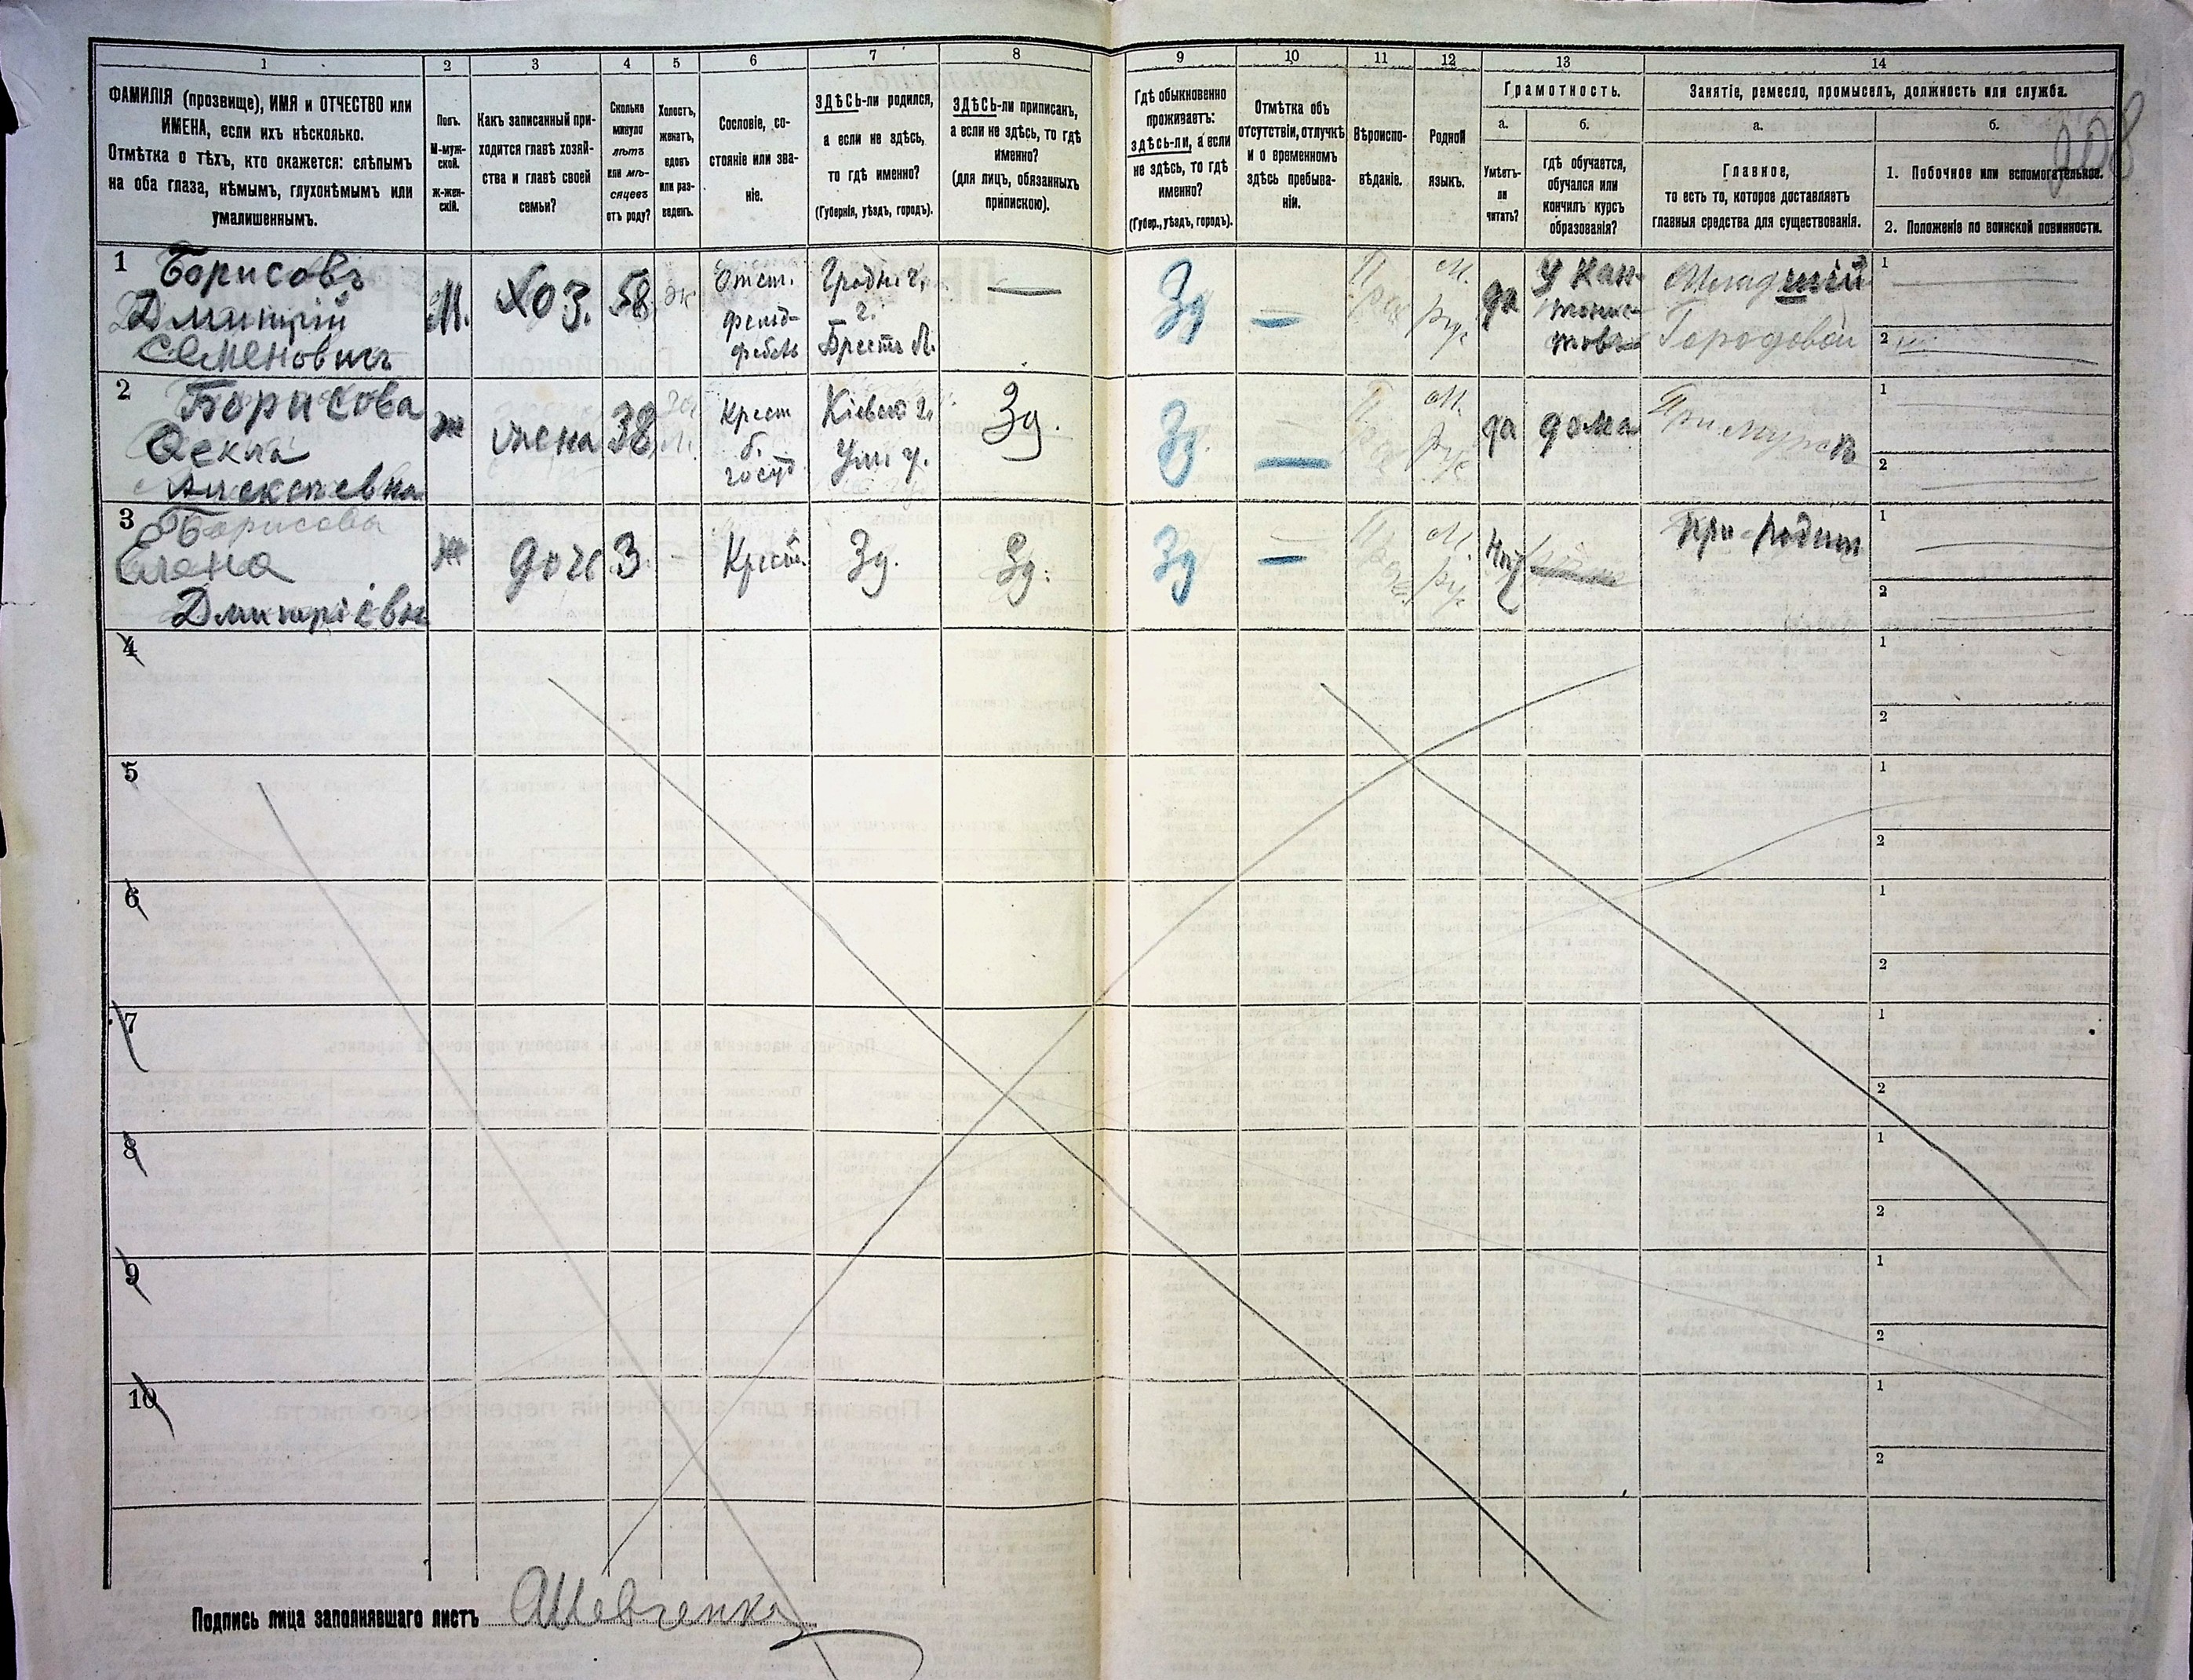 1 2 3 4 5 6 7 8 9 10 11 12 13 14
ФАМИЛІЯ (прозвище), ИМЯ и ОТЧЕСТВО или
ИМЕНА, если ихъ нѣсколько.
Отмѣтка о тѣхъ, кто окажется: слѣпымъ
на оба глаза, нѣмымъ, глухонѣмымъ или
умалишеннымъ.
Полъ.
М-муж-
ской.
ж-жен-
скій.
Какъ записанный при-
ходится главѣ хозяй-
ства и главѣ своей
семьи?
Сколько
минуло
лѣтъ
или мѣ-
сяцевъ
отъ роду?
Холостъ,
женатъ,
вдовъ
или раз-
веденъ.
Сословіе, со-
стояніе или зва-
ніе.
ЗДѢСЬ-ли родился,
а если не здѣсь,
то гдѣ именно?
(Губернія, уѣздъ, городъ).
ЗДѢСЬ-ли приписанъ,
а если не здѣсь, то гдѣ
именно?
(для лицъ, обязанныхъ
припискою).
Гдѣ обыкновенно
проживаетъ:
здѣсь-ли, а если
не здѣсь, то гдѣ
именно?
(Губер., уѣздъ, городъ).
Отмѣтка объ
отсутствіи, отлучкѣ
и о временномъ
здѣсь пребыва-
ніи.
Вѣроиспо-
вѣданіе.
Родной
языкъ.
Грамотность.
а.
Умѣетъ-
ли
читать?
б.
гдѣ обучается,
обучался или
кончилъ курсъ
образованія?
Занятіе, ремесло, промыселъ, должность или служба.
а.
Главное,
то есть то, которое доставляетъ
главныя средства для существованія.
б.
1. Побочное или вспомогательное.
2. Положеніе по воинской повинности.
208
1
Борисовъ
Дмитрій
Семеновичъ
М.
Хоз.
58
ж
Отст.
фельд-
фебель
Гродн. г.
г.
Брестъ Л.
—
Зд
—
Прав
М.
рус
да
У Кан-
тонис-
товъ
Младшій
Городовой
1
2
2
Борисова
Ѳекла
Алексѣевна
ж
жена
38
Крест
б.
госуд
Кіевск г.
Ум у.
Зд.
Зд.
—
Пра
М.
Рус
да
дома
При мужѣ
1
2
3
Борисова
Елена
Дмитріевна
ж
дочь
3
-
Крест.
Зд.
Зд.
Зд
—
Прав.
М.
рус
нѣт
При родит
1
2
4
1
2
5
1
2
6
1
2
7
1
2
8
1
2
9
1
2
10
1
2
Подпись лица заполнявшаго листъ АШевченко